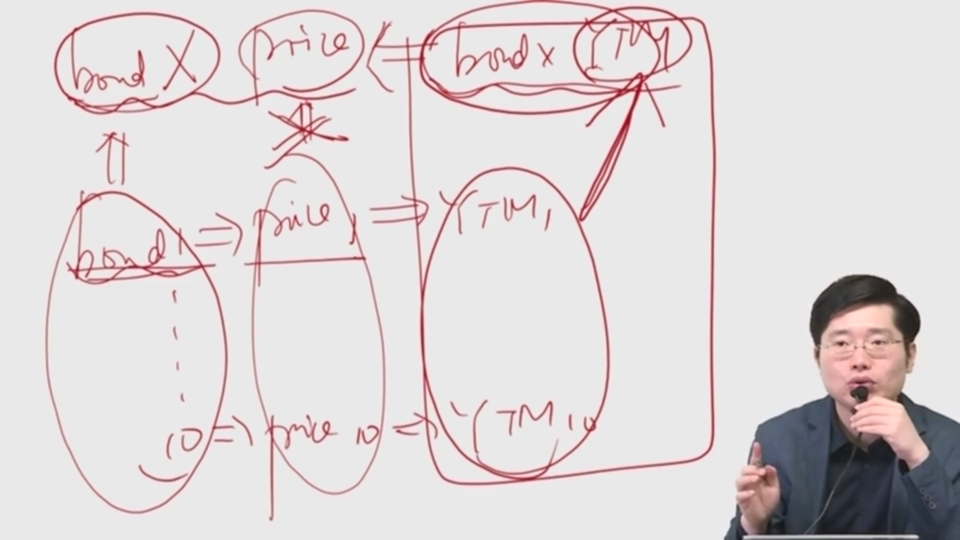 bond X price ⇐ bond x YTM
bond 1 ⇒ price 1 ⇒ YTM1
10 ⇒ price 10 ⇒ YTM10